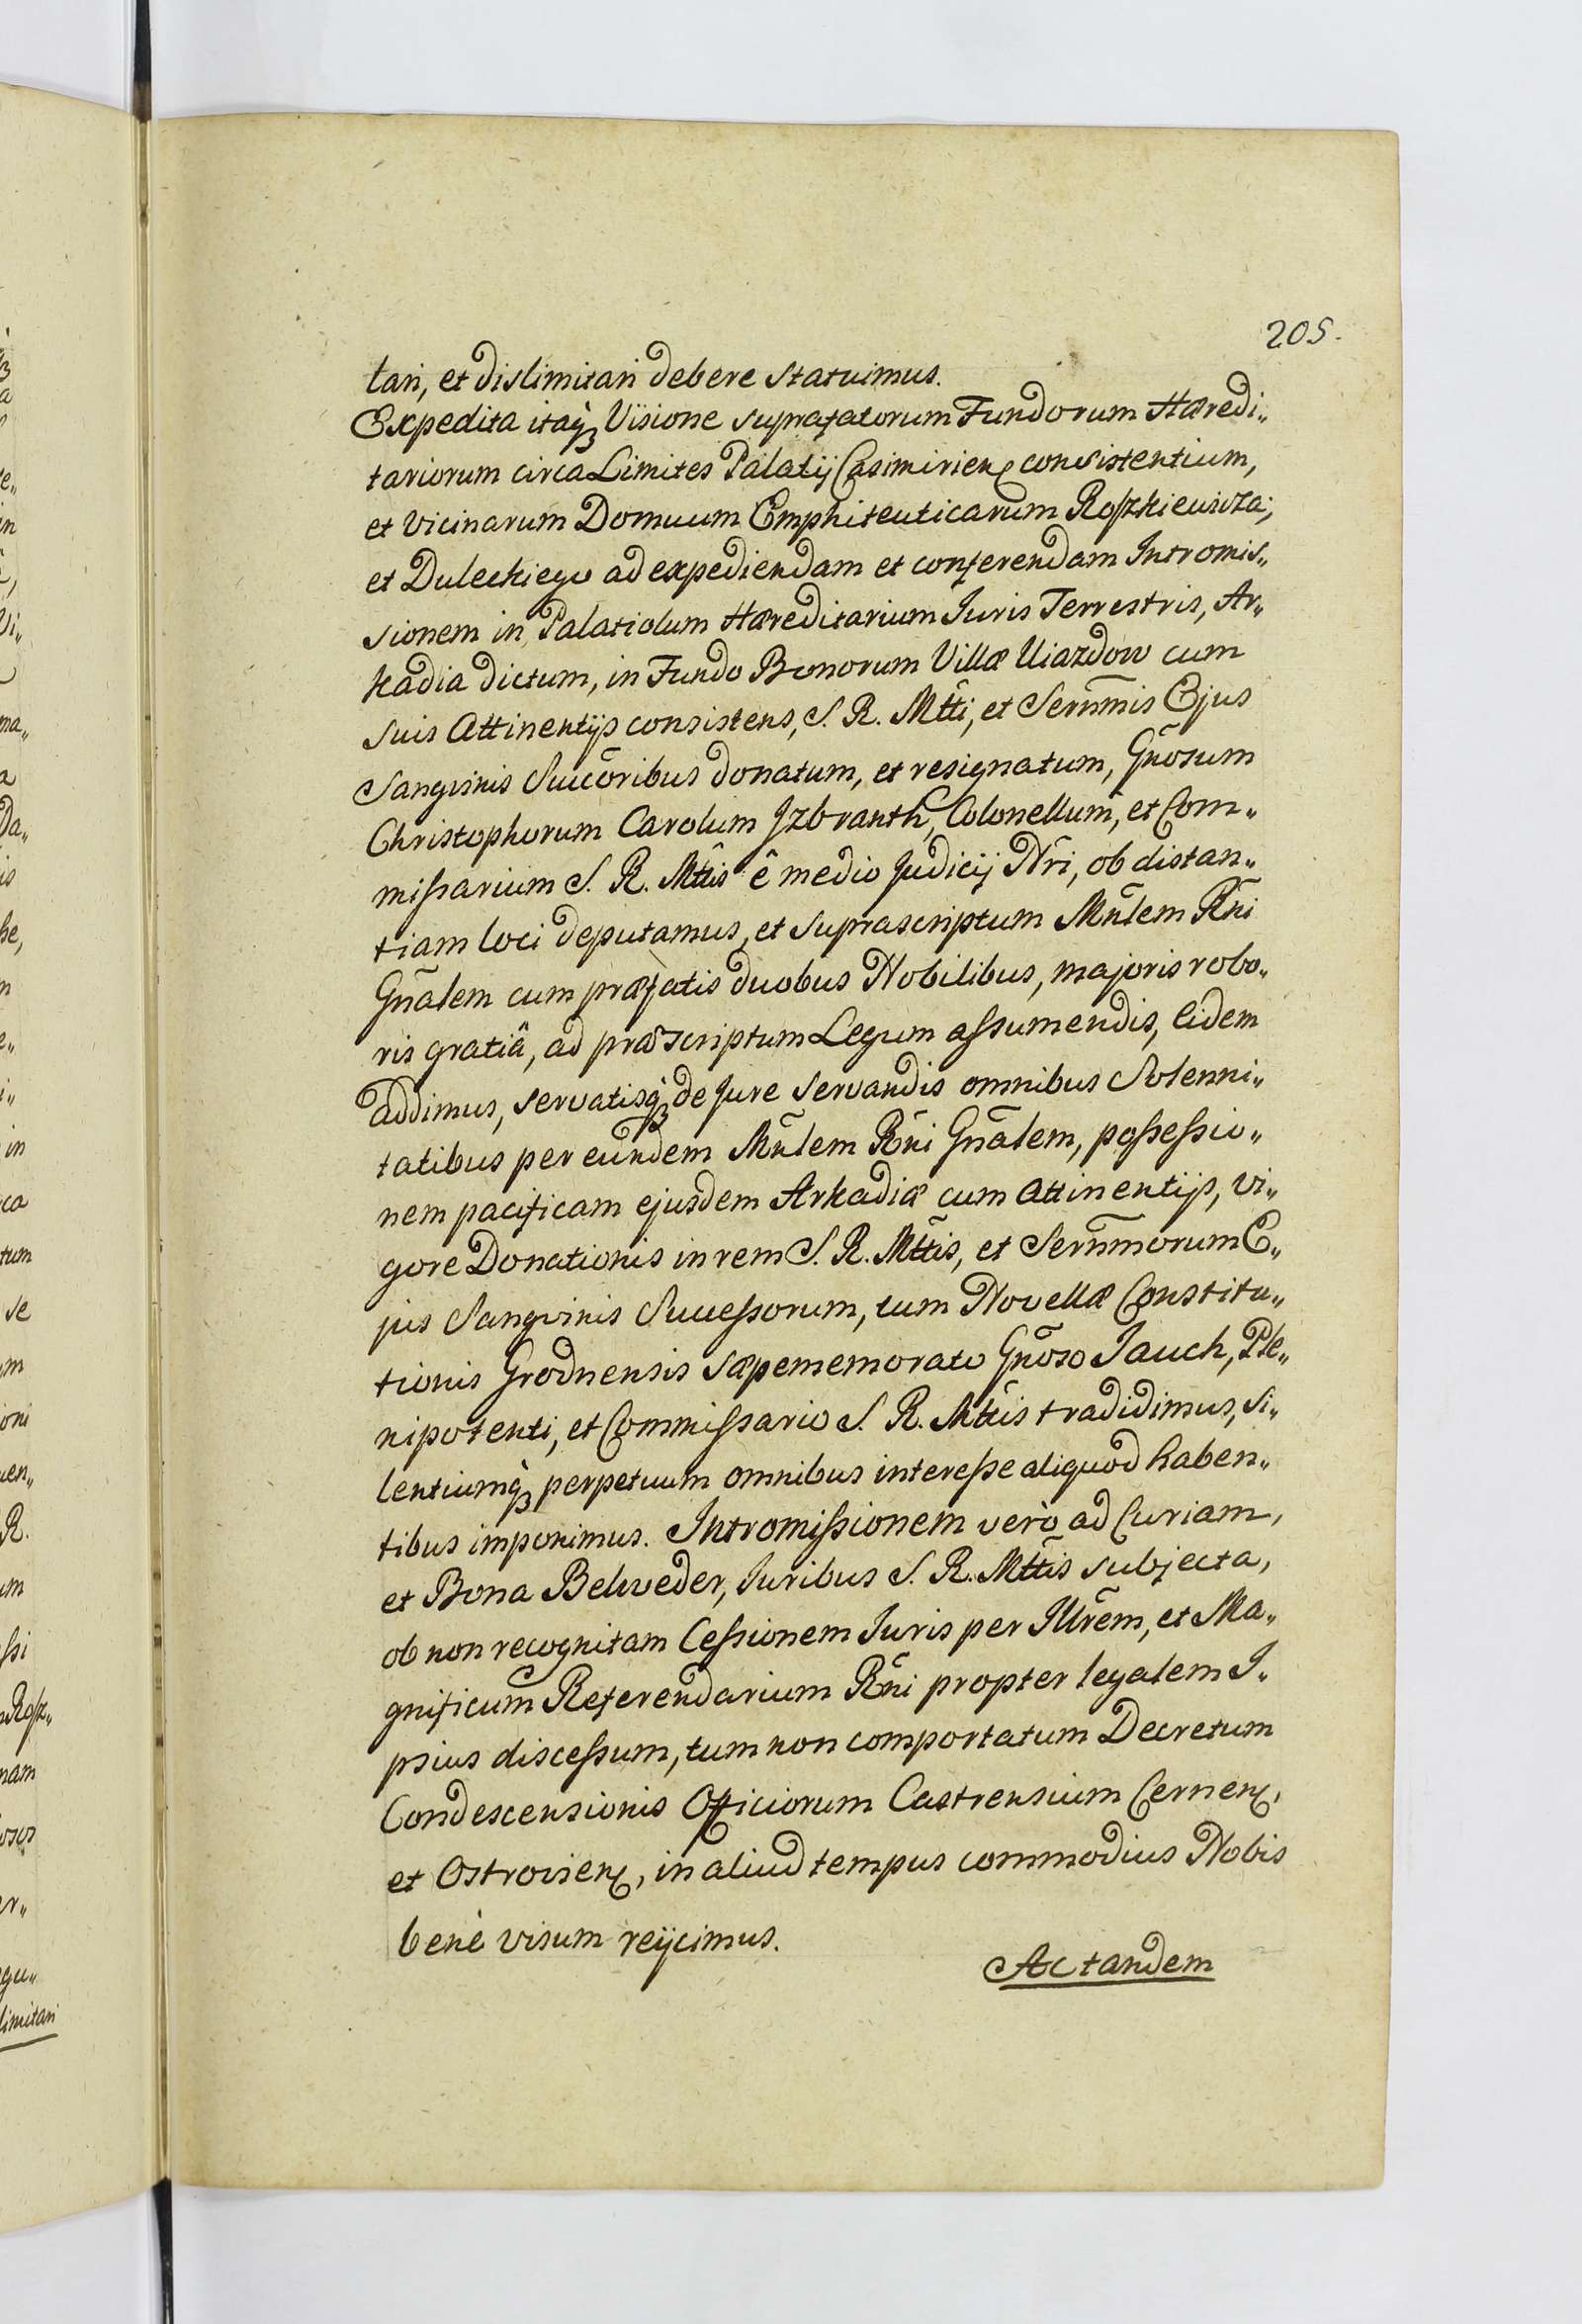 205.
tari, et dislimitari debere statuimus.
Expedita itaq3 Visione suprafatorum Fundorum Hæredi„
tariorum circa Limites Palatij Casimirien consistentium,
et vicinarum Domuum Emphiteuticarum Roszkiewicza,
et Duleckiego ad expediendam et conferendam Intromis„
sionem in Palatiolum Hæreditarium Juris Terrestris, Ar„
kadia dictum, in Fundo Bonorum Villæ Uiazdow cum
suis Attinentijs consistens, S. R. Mtti, et Sernmis Ejus
Sangvinis Succoribus donatum, et resignatum, Gnosum
Christophorum Carolum Jzbranth, Colonellum, et Com„
missarium S. R. Mttis ê medio Judicij Nri, ob distan„
tiam loci deputamus, et suprascriptum Mnlem Rni
Gnalem cum præfatis duobus Nobilibus, majoris robo„
ris gratiâ, ad præscriptum Legum assumendis, Eidem
addimus, servatisq3 de Jure servandis omnibus Solenni„
tatibus per eundem Mnlem Rni Gnalem, possessio„
nem pacificam ejusdem Arkadiæ cum Attinentijs, vi„
gore Donationis in rem S. R. Mttis, et Sernmorum E„
jus Sangvinis Successorum, tum Novellæ Constitu„
tionis Grodnensis sæpememorato Gnoso Jauch, Ple„
nipotenti, et Commissario S. R. Mttis tradidimus, si„
lentiumq3 perpetuum omnibus interesse aliquod haben„
tibus imponimus. Intromissionem verò ad Curiam,
et Bona Belweder, Juribus S. R. Mttis subjecta,
ob non recognitam Cessionem Juris per Illrem, et Ma„
gnificum Referendarium Rni propter legalem I„
psius discessum, tum non comportatum Decretum
Condescensionis Officiorum Castrensium Cernen,
et Ostrovien, in aliud tempus commodius Nobis
benè visum reijcimus.
Ac tandem